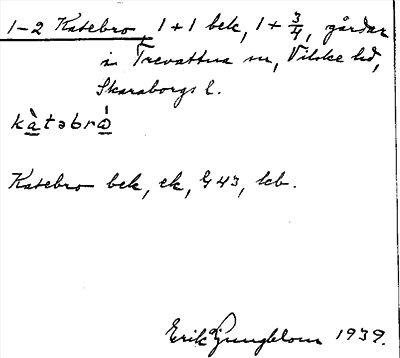 1-2 Katebro, 1+1 bek, 1+3/4, gårdar
i Trevattna sn, Vilske hd,
Skaraborgs l.
kàtəbrò
Katebro bek, ek, G43, kb.
Erik Ljungblom 1939.